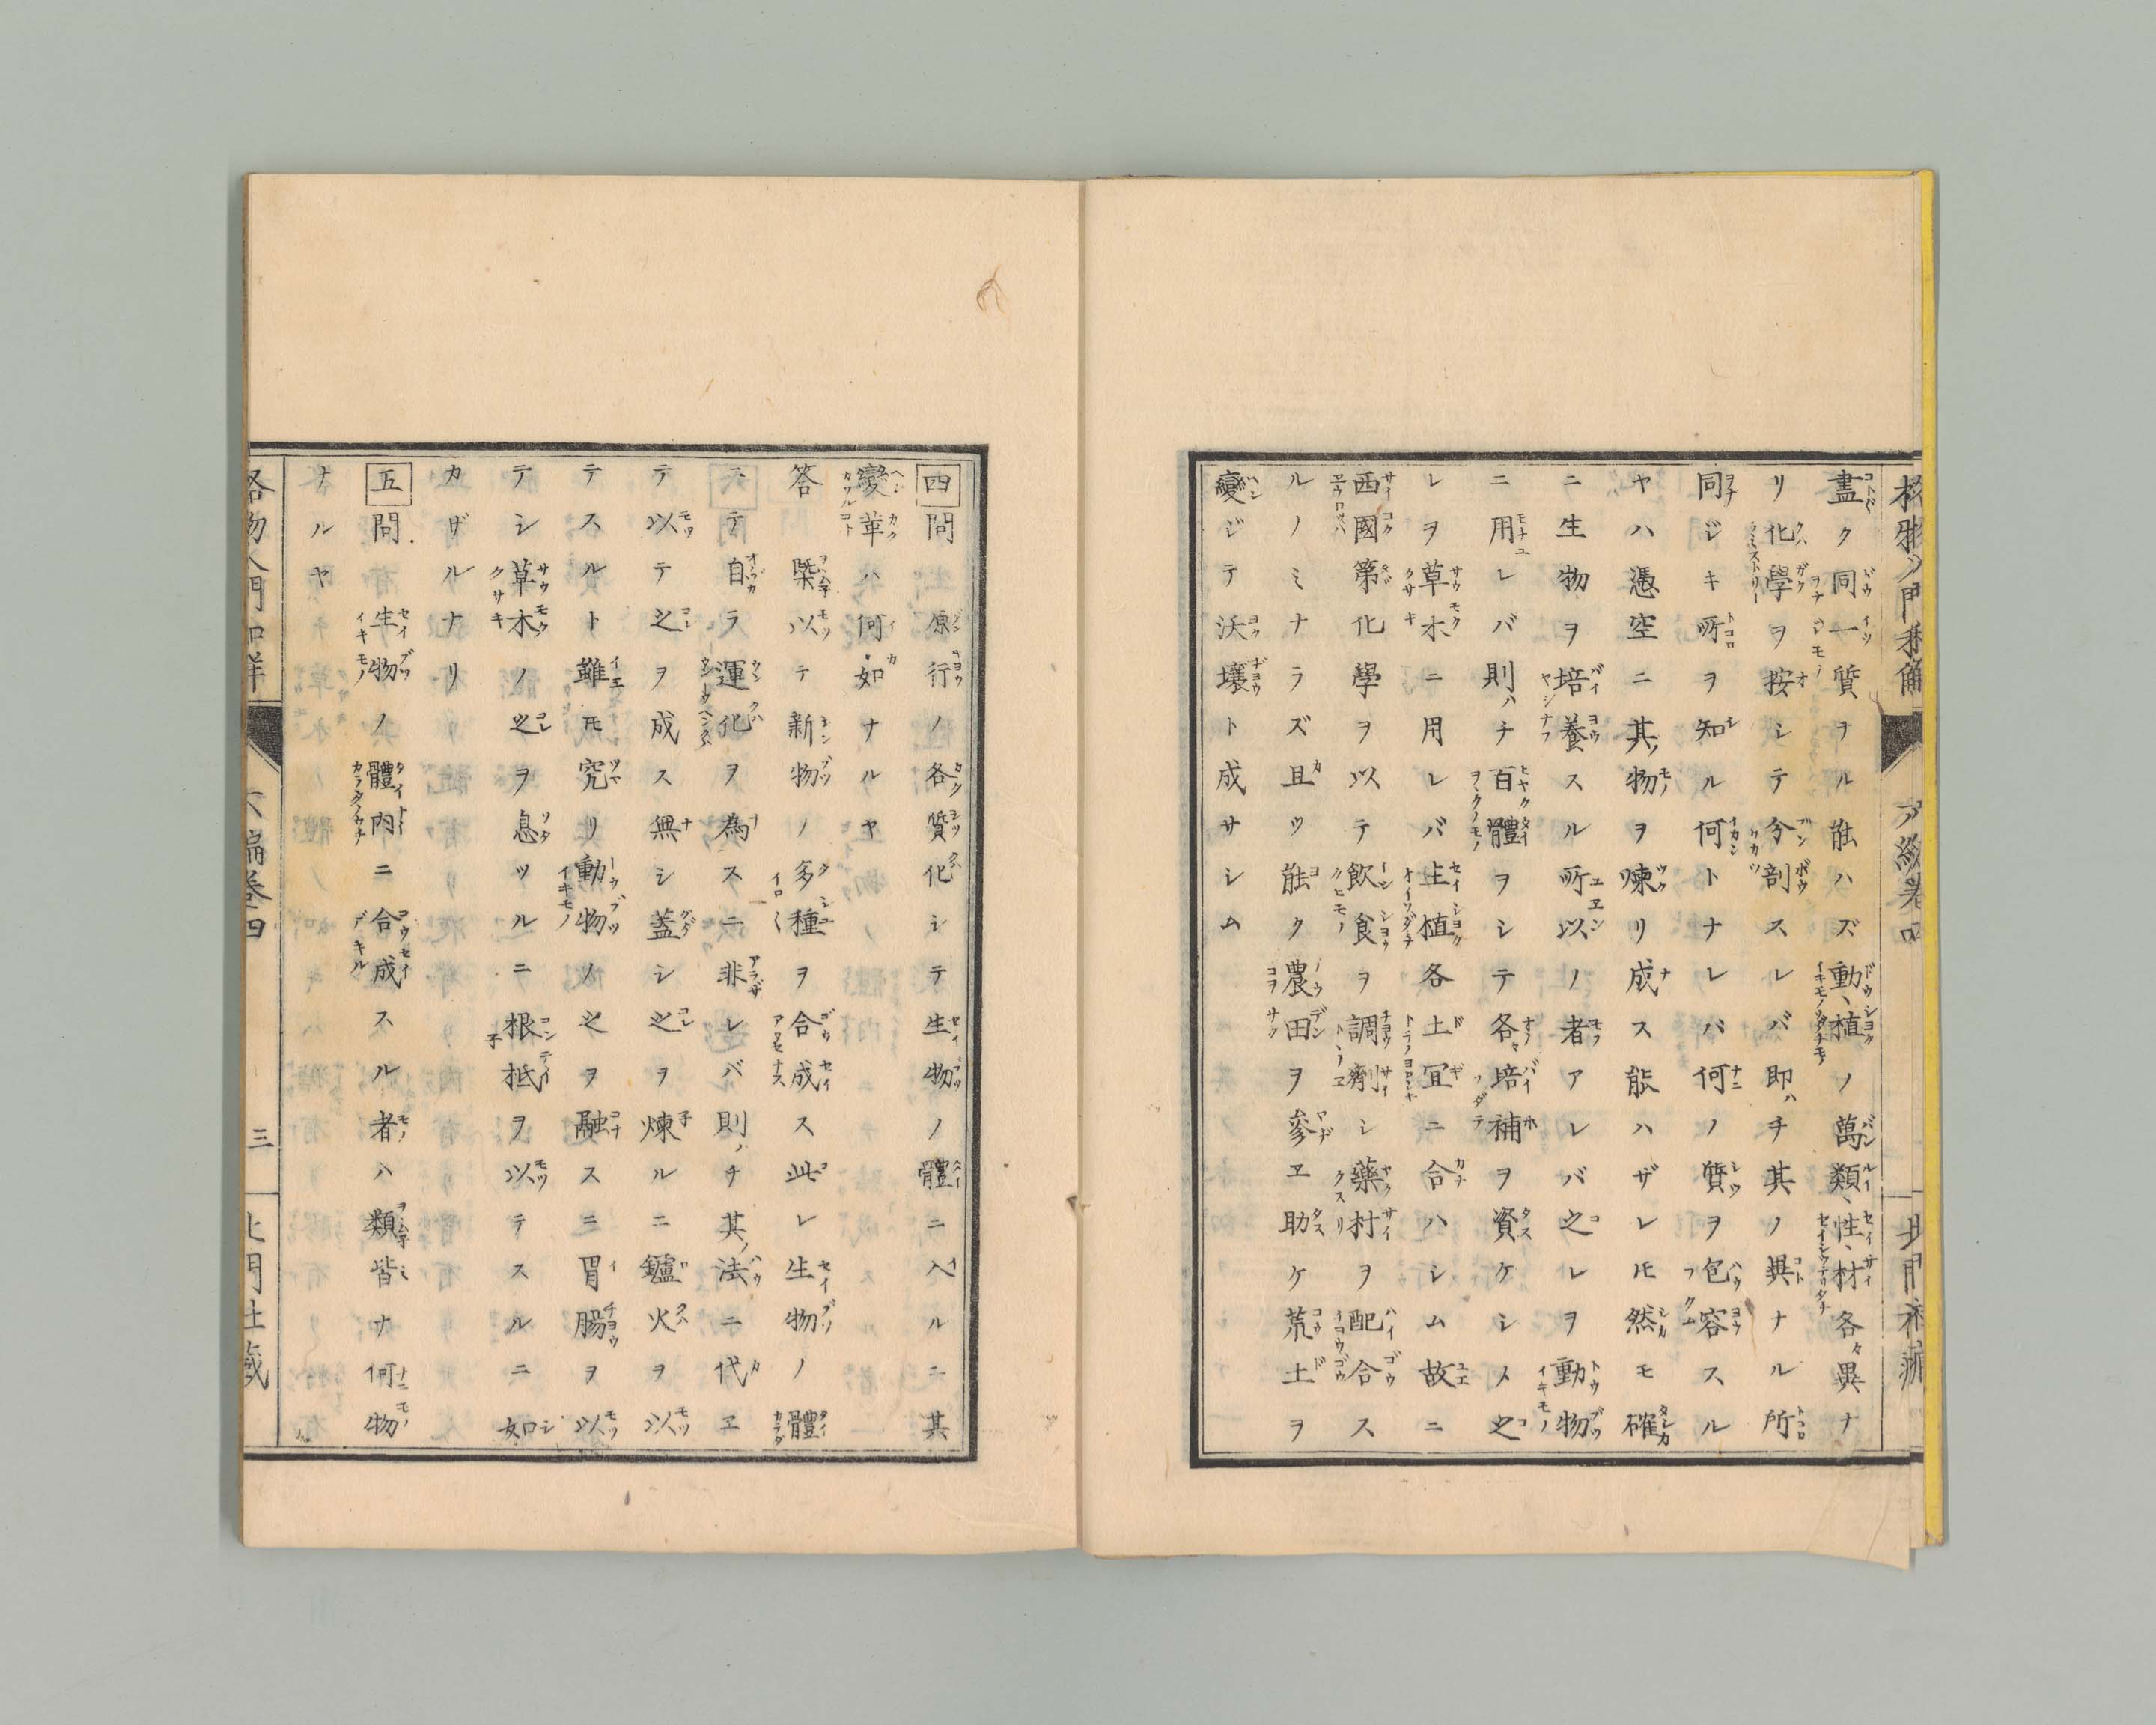 盡ク同一質ナル能ハズ動、植ノ萬類、性、材各々異ナ
リ化學ヲ按シテ分剖スレバ即ハチ其ノ異ナル所
同ジキ所ヲ知ル何トナレバ何ノ質ヲ包容スル
ヤハ憑空ニ其ノ物ヲ煉リ成ス能ハザレ𪜈然モ確
ニ生物ヲ培養スル所以ノ者アレバ之レヲ動物
ニ用レバ則ハチ百體ヲシテ各々培補ヲ資ケシメ之
レヲ草木ニ用レバ生植各土宜ニ合ハシム故ニ
西國第化學ヲ以テ飲食ヲ調劑シ藥材ヲ配合ス
ルノミナラズ且ツ能ク農田ヲ參ヱ助ケ荒土ヲ
變ジテ沃壤ト成サシム
四 問 原行ノ各質化シテ生物ノ體ニ入ルニ其
變革ハ何如ナルヤ
答 槩以テ新物ノ多種ヲ合成ス此レ生物ノ體
ニテ自ラ運化ヲ為スニ非レバ則ノチ其ノ法ニ代ヱ
テ以テ之ヲ成ス無シ蓋シ之ヲ煉ルニ鑪火ヲ以
テスルト雖𪜈究リ動物ノ之ヲ融スニ胃腸ヲ以
テシ草木ノ之ヲ息ツルニ根柢ヲ以テスルニ如
カザルナリ
五 問 生物ノ體內ニ合成スル者ハ類皆ナ何物
ナルヤ
格物入門和解 六編卷四 三 北門社藏